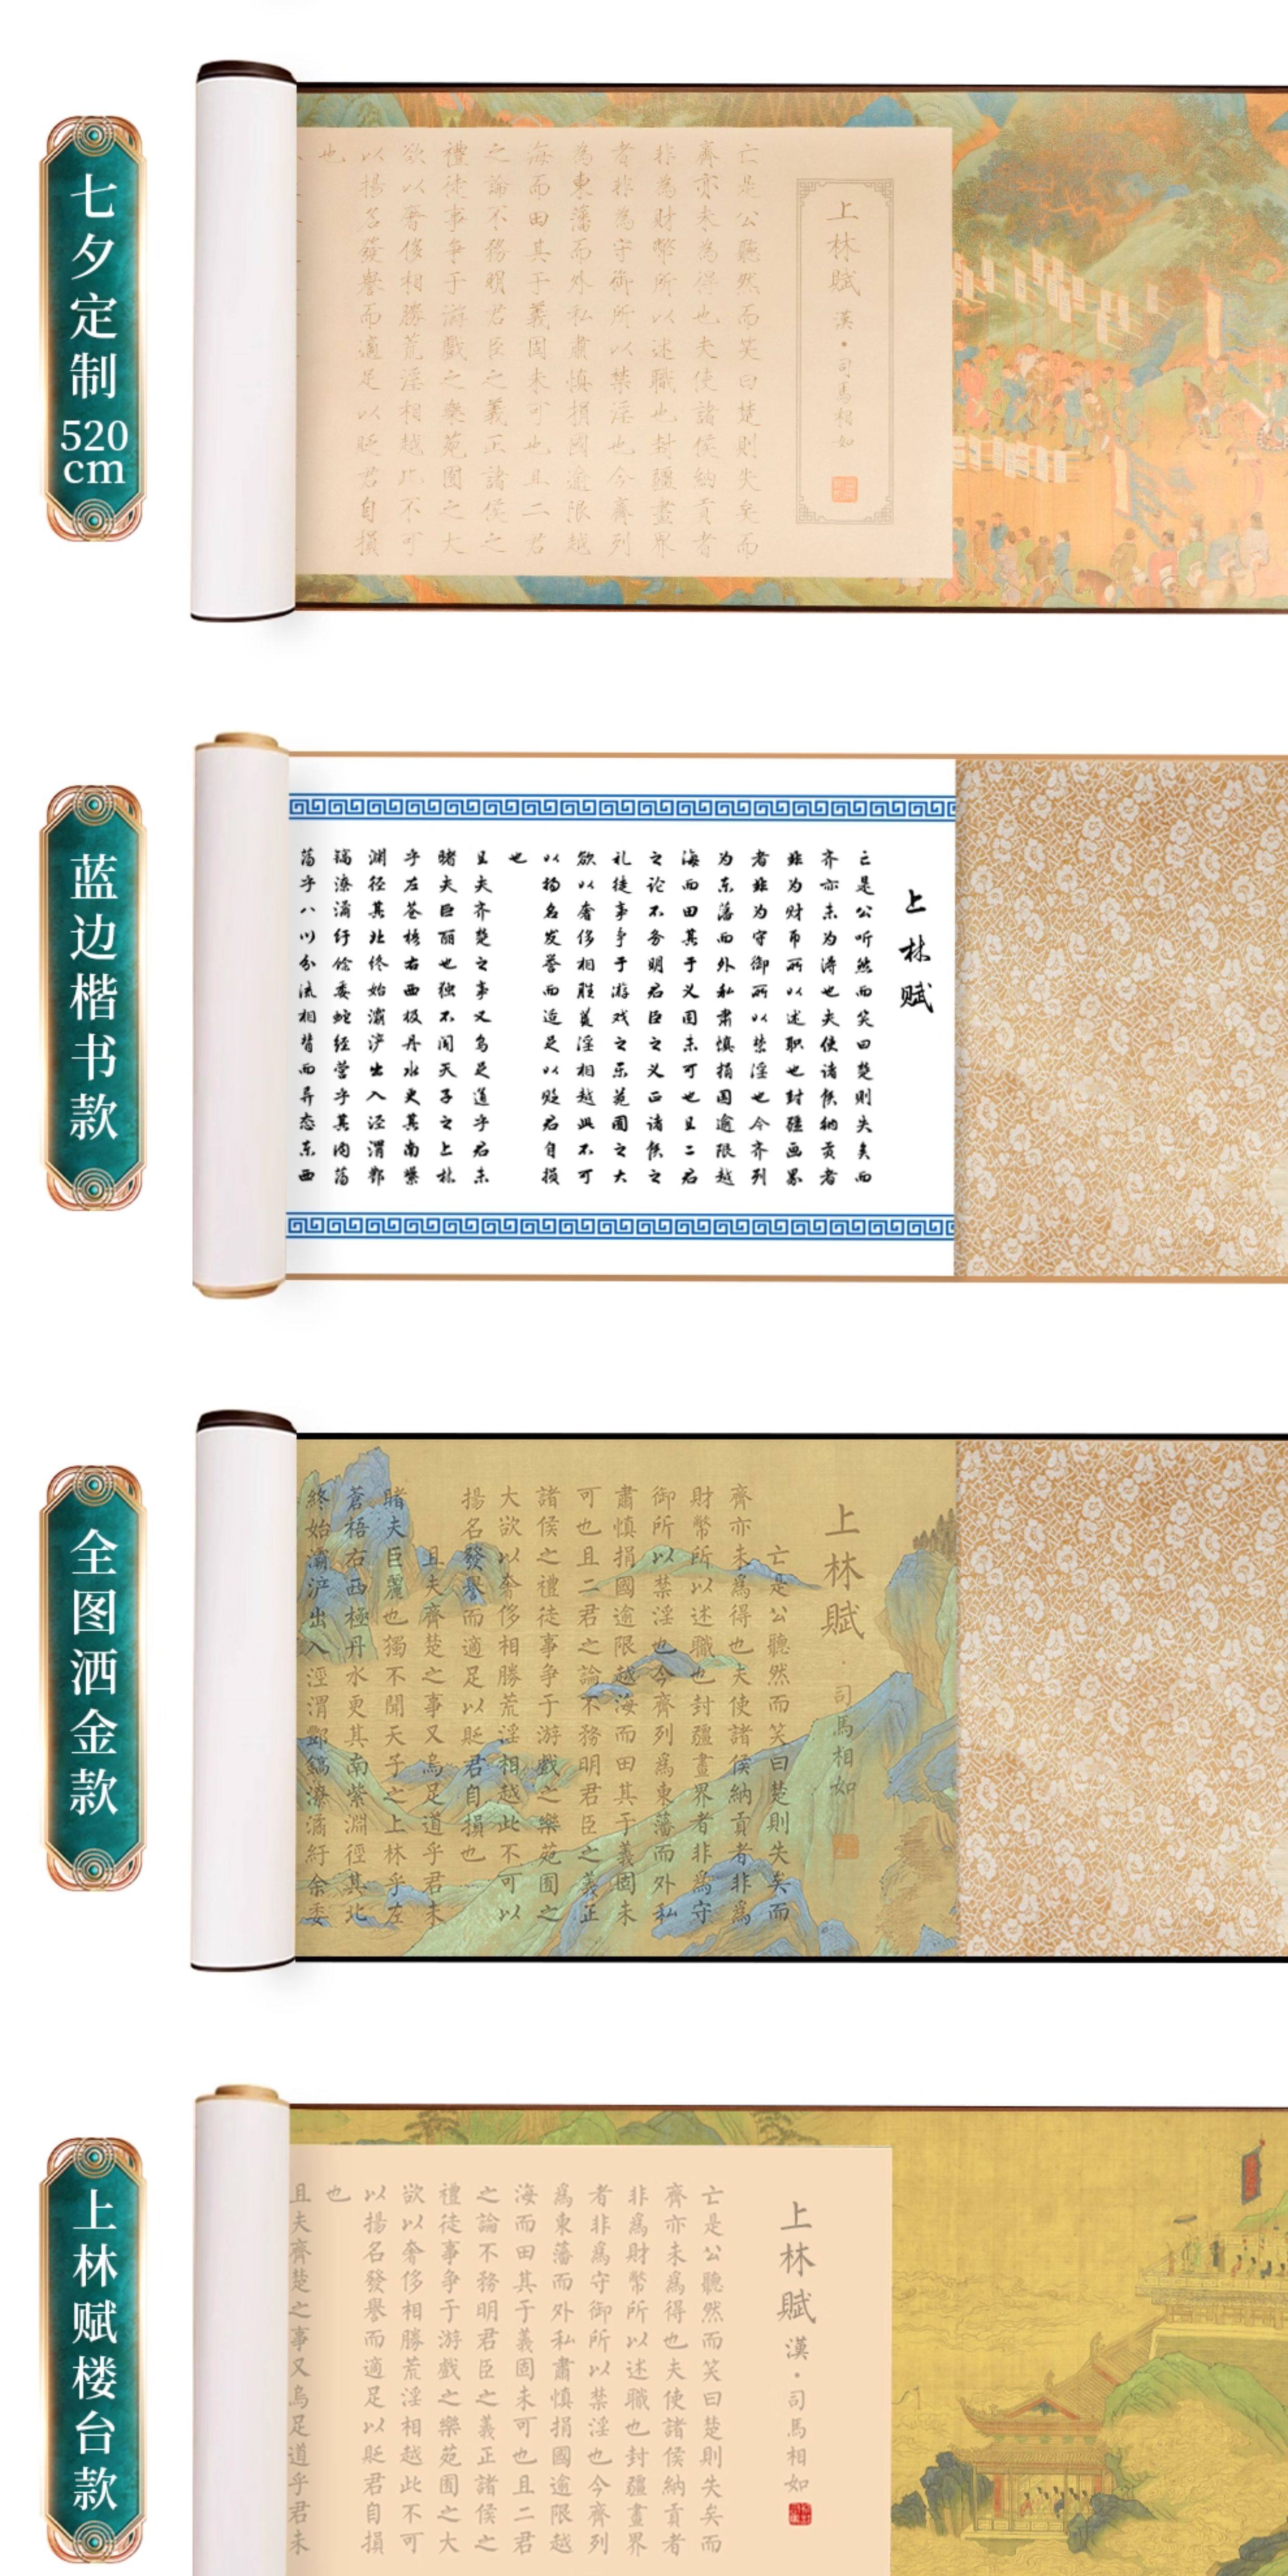 七夕定制
520
cm
上林賦 漢·司馬相如
亡是公聽然而笑曰楚則失矣而
齊亦未為得也夫使諸侯納貢者
非為財幣所以述職也封疆畫界
者非為守御所以禁淫也今齊列
為東藩而外私肅慎捐國逾限越
海而田其于義固未可也且二君
之論不務明君臣之義正諸侯之
禮徒事爭于游戲之樂苑囿之大
欲以奢侈相勝荒淫相越此不可
以揚名發譽而適足以貶君自損
也
蓝边楷书款
上林赋
亡是公听然而笑曰楚则失矣而
齐亦未为得也夫使诸侯纳贡者
非为财币所以述职也封疆画界
者非为守御所以禁淫也今齐列
为东藩而外私肃慎捐国逾限越
海而田其于义固未可也且二君
之论不务明君臣之义正诸侯之
礼徒事争于游戏之乐苑囿之大
欲以奢侈相胜荒淫相越此不可
以扬名发誉而适足以贬君自损
也
且夫齐楚之事又乌足道乎君未
睹夫巨丽也独不闻天子之上林
乎左苍梧右西极丹水更其南紫
渊径其北终始灞浐出入泾渭酆
镐潦潏纡馀委蛇经营乎其内荡
荡乎八川分流相背而异态东西
全图洒金款
上林賦·司馬相如
亡是公聽然而笑曰楚則失矣而
齊亦未爲得也夫使諸侯納貢者非爲
財幣所以述職也封疆畫界者非爲守
御所以禁淫也今齊列爲東藩而外私
肅慎捐國逾限越海而田其于義固未
可也且二君之論不務明君臣之義正
諸侯之禮徒事爭于游戲之樂苑囿之
大欲以奢侈相勝荒淫相越此不可以
揚名發譽而適足以貶君自損也
且夫齊楚之事又烏足道乎君未
睹夫巨麗也獨不聞天子之上林乎左
蒼梧右西極丹水更其南紫淵徑其北
終始灞浐出入涇渭酆鎬潦潏紆余委
上林赋楼台款
上林賦 漢·司馬相如
亡是公聽然而笑曰楚則失矣而
齊亦未爲得也夫使諸侯納貢者
非爲財幣所以述職也封疆畫界
者非爲守御所以禁淫也今齊列
爲東藩而外私肅慎捐國逾限越
海而田其于義固未可也且二君
之論不務明君臣之義正諸侯之
禮徒事爭于游戲之樂苑囿之大
欲以奢侈相勝荒淫相越此不可
以揚名發譽而適足以貶君自損
也
且夫齊楚之事又烏足道乎君未